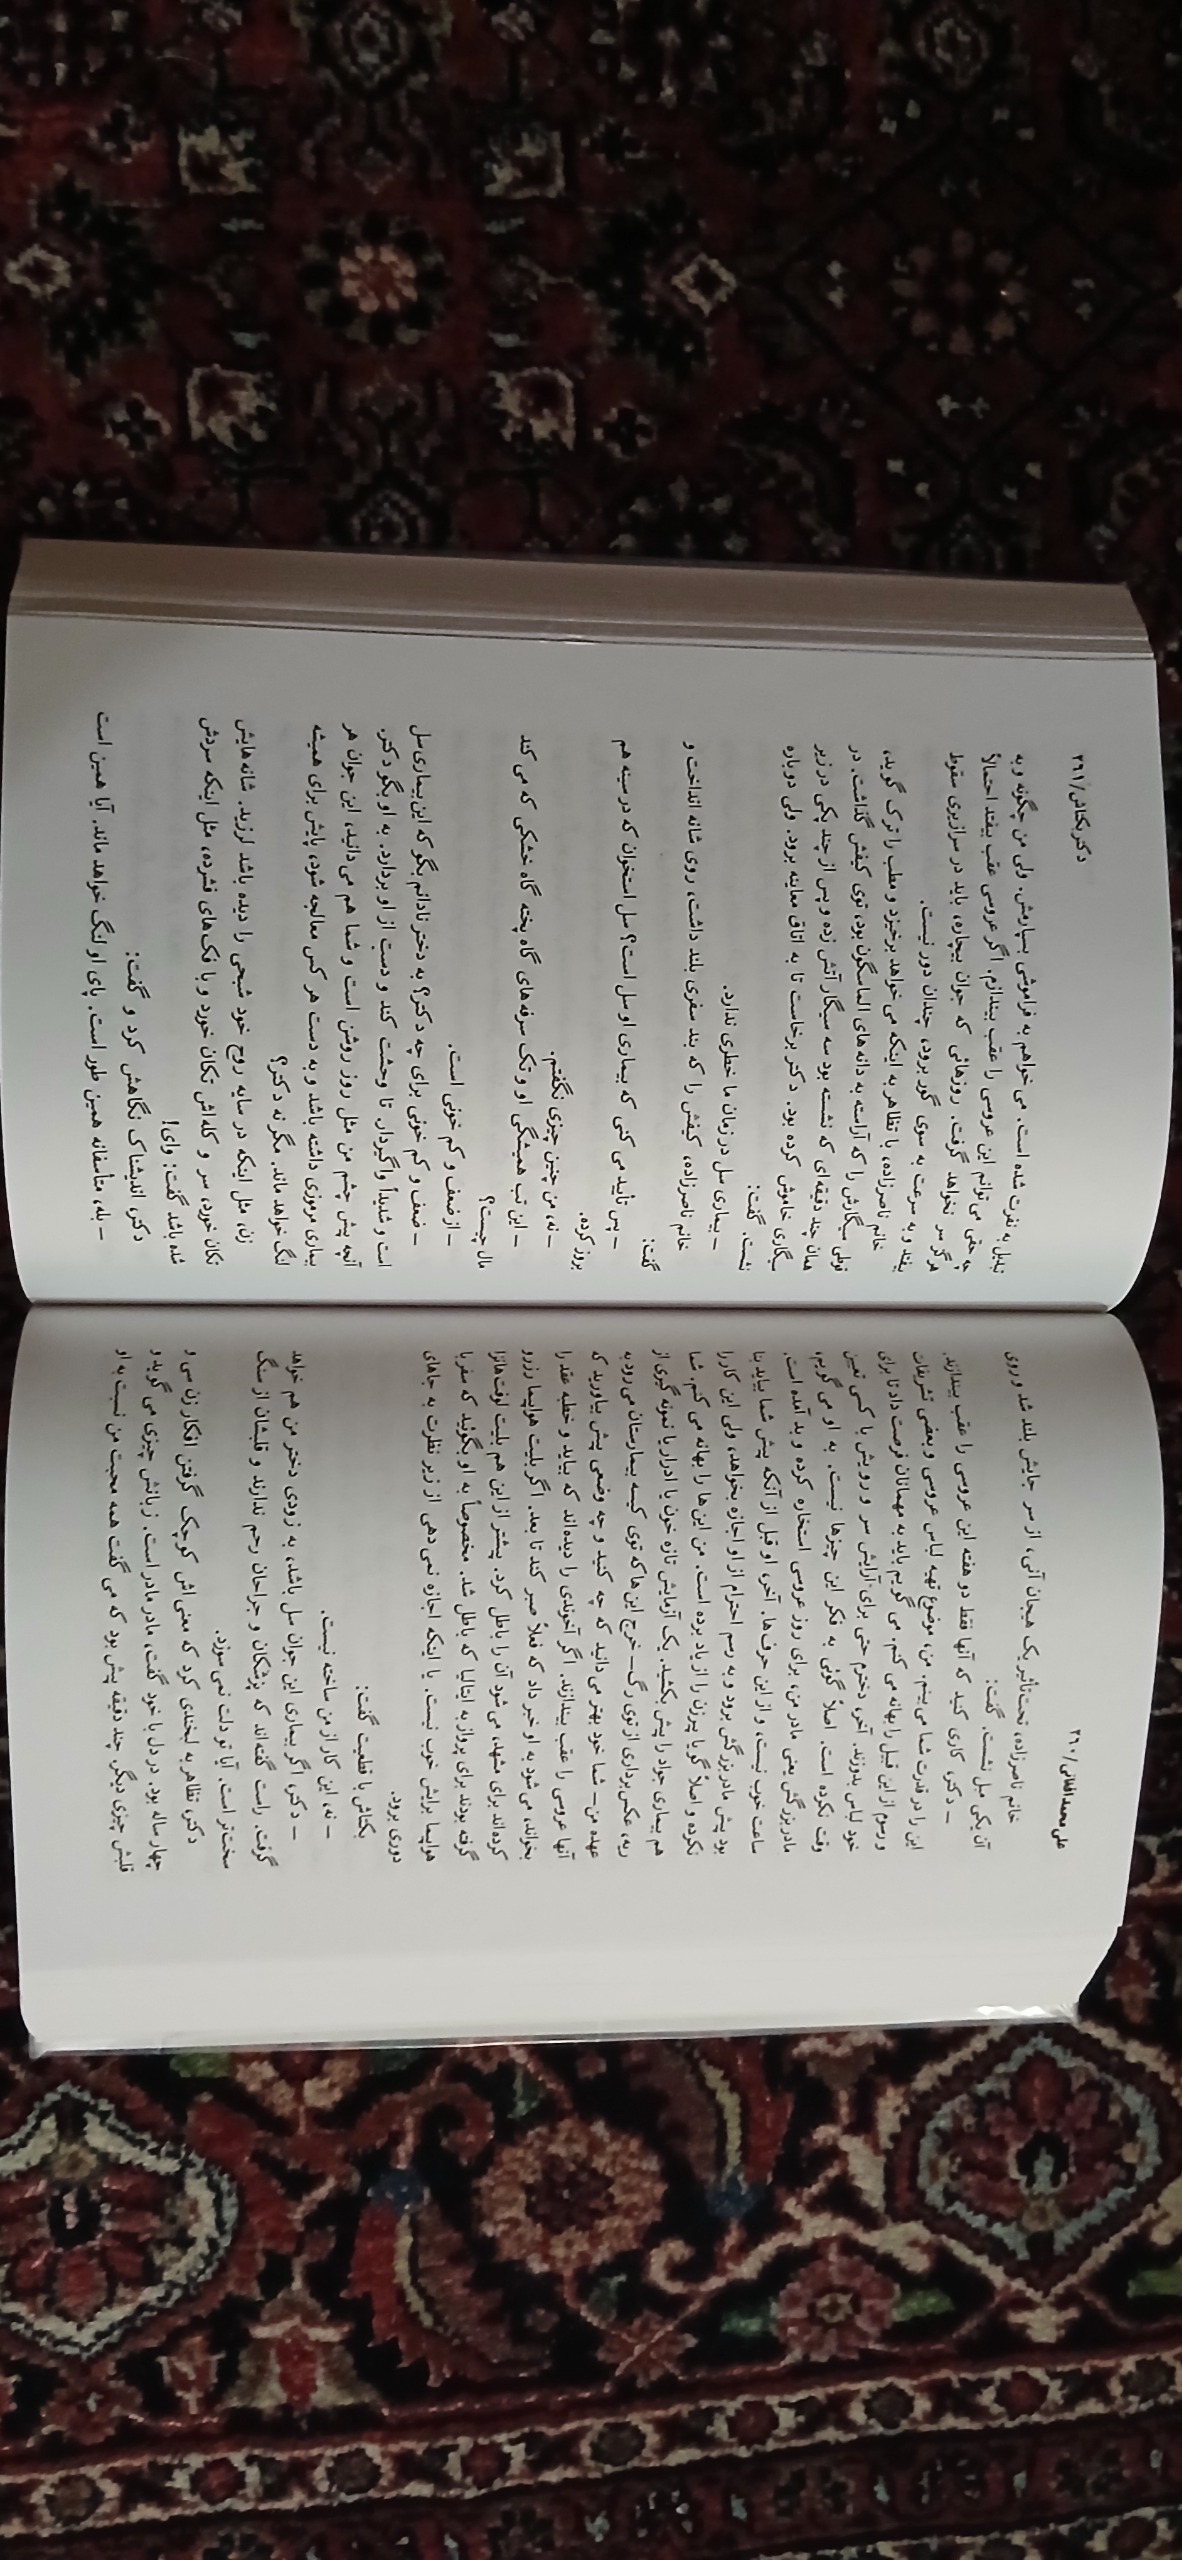 علی محمد افغانی/۳۶۰
خانم ناصرزاده، تحت تأثیر یک هیجان آنی، از سر جایش بلند شد و روی
آن یکی مبل نشست. گفت:
ـ دکتر، کاری کنید که آنها فقط دو هفته این عروسی را عقب بیندازند.
این را در قدرت شما می‌بینم. من، موضوع تهیه لباس عروسی و بعضی تشریفات
و رسوم از این قبیل را بهانه می‌کنم. می‌گویم باید به مهمانان فرصت داد تا برای
خود لباس بدوزند. آخر، دخترم حتی برای آرایش سر و رویش با کسی تعیین
وقت نکرده است. اصلاً گوئی به فکر این چیزها نیست. به او می‌گویم،
مادربزرگش یعنی مادر من، برای روز عروسی استخاره کرده و بد آمده است.
ساعت خوب نیست، و از این حرف‌ها. آخر، او قبل از آنکه پیش شما بیاید بنا
بود پیش مادربزرگش برود و به رسم احترام از او اجازه بخواهد، ولی این کار را
نکرده و اصلاً گویا پیرزن را از یاد برده است. من این‌ها را بهانه می‌کنم. شما
هم بیماری جواد را پیش بکشید. یک آزمایش تازه خون یا ادرار یا نمونه‌گیری از
ریه، عکس‌برداری از توی رگ ـ خرج این‌ها که توی کیسه بیمارستان می‌رود به
عهده من ـ شما خود بهتر می‌دانید که چه کنید و چه وضعی پیش بیاورید که
آنها عروسی را عقب بیندازند. اگر آخوندی را دیده‌اند که بیاید و خطبه عقد را
بخواند، می‌شود به او خبر داد که فعلاً صبر کند تا بعد. اگر بلیت هواپیما رزرو
کرده‌اند برای مشهد، می‌شود آن را باطل کرد. پیشتر از این هم بلیت لوفت‌هانزا
گرفته بودند برای پرواز به ایتالیا که باطل شد. مخصوصاً به او بگوئید که سفر با
هواپیما برایش خوب نیست. یا اینکه اجازه نمی‌دهی از زیر نظرت به جاهای
دوری برود.
بکتاش با قطعیت گفت:
ـ نه، این کار از من ساخته نیست.
ـ دکتر، اگر بیماری این جوان سل باشد، به زودی دختر من هم خواهد
گرفت. راست گفته‌اند که پزشکان و جراحان رحم ندارند و قلبشان از سنگ
سخت‌تر است. آیا تو دلت نمی‌سوزد.
دکتر، تظاهر به لبخندی کرد که معنی‌اش کوچک گرفتن افکار زن سی و
چهار ساله بود. در دل با خود گفت، مادر مادر است. زبانش چیزی می‌گوید و
قلبش چیزی دیگر. چند دقیقه پیش بود که می‌گفت همه محبت من نسبت به او
دکتر بکتاش/۳۶۱
تبدیل به نفرت شده است. می‌خواهم به فراموشی بسپارمش. ولی من چگونه و به
چه حقی می‌توانم این عروسی را عقب بیندازم. اگر عروسی عقب بیفتد احتمالاً
هرگز سر نخواهد گرفت. روزهائی که جوان بیچاره، باید در سرازیری سقوط
بیفتد و به سرعت به سوی گور برود، چندان دور نیست.
خانم ناصرزاده، با تظاهر به اینکه می‌خواهد برخیزد و مطب را ترک گوید،
قوطی سیگارش را که آراسته به دانه‌های الماسگون بود، توی کیفش گذاشت. در
همان چند دقیقه‌ای که نشسته بود سه سیگار آتش زده و پس از چند پکی در زیر
سیگاری خاموش کرده بود. دکتر برخاست تا به اتاق معاینه برود. ولی دوباره
نشست. گفت:
ـ بیماری سل در زمان ما خطری ندارد.
خانم ناصرزاده، کیفش را که بند سفری بلند داشت، روی شانه انداخت و
گفت:
ـ پس تأیید می‌کنی که بیماری او سل است؟ سل استخوان که در سینه هم
بروز کرده.
ـ نه، من چنین چیزی نگفتم.
ـ این تب همیشگی او و تک سرفه‌های گاه پخته گاه خشکی که می‌کند
مال چیست؟
ـ از ضعف و کم خونی است.
ـ ضعف و کم خونی برای چه دکتر؟ به دختر نادانم بگو که این بیماری سل
است و شدیداً واگیردار. تا وحشت کند و دست از او بردارد. به او بگو دکتر.
آنچه پیش چشم من مثل روز روشن است و شما هم می‌دانید، این جوان هر
بیماری مرموزی داشته باشد و به دست هر کس معالجه شود، پایش برای همیشه
لنگ خواهد ماند. مگر نه دکتر؟
زن، مثل اینکه در سایه روح خود شبحی را دیده باشد لرزید. شانه‌هایش
تکان خورد، سر و کله‌اش تکان خورد و با فک‌های فشرده، مثل اینکه سردش
شده باشد گفت: وای!
دکتر، اندیشناک نگاهش کرد و گفت:
ـ بله، متأسفانه همین طور است. پای او لنگ خواهد ماند. آیا همین است